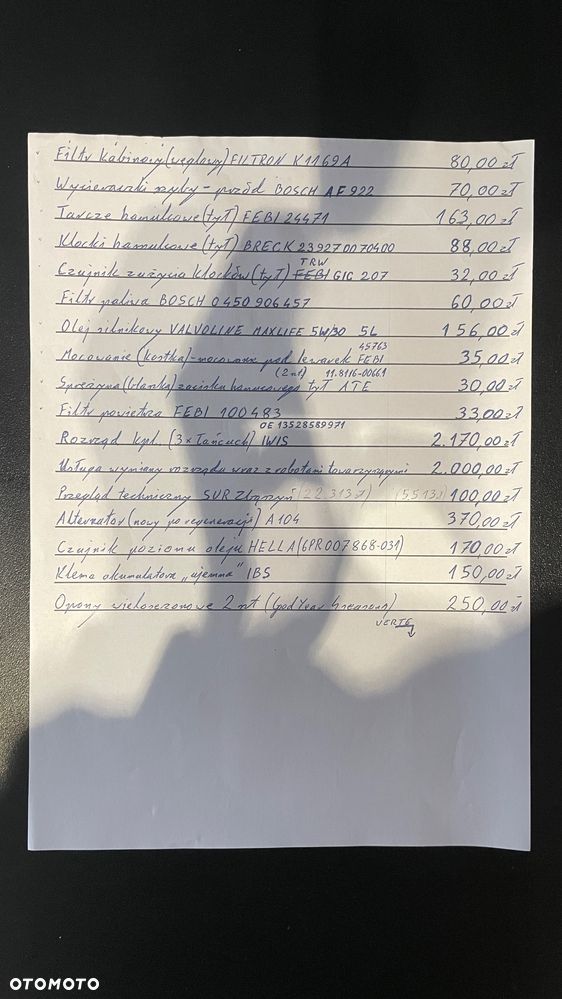 Filtr kabinowy (węglowy) FILTRON K1169A 80,00 zł
Wycieraczki szyby - przód BOSCH AE922 70,00 zł
Tarcze hamulcowe (tył) FEBI 24471 163,00 zł
Klocki hamulcowe (tył) BRECK 23927 00 704 00 88,00 zł
TRW
Czujnik zużycia klocków (tył) FEBI GIC 207 32,00 zł
Filtr paliwa BOSCH 0 450 906 457 60,00 zł
Olej silnikowy VALVOLINE MAXLIFE 5W/30 5L 156,00 zł
45763
Mocowanie (kostka) - mocowanie pod lewarek FEBI 35,00 zł
(2szt) 11.8116-0066.1
Sprężyna (blanka) zacisku hamulcowego tył ATE 30,00 zł
Filtr powietrza FEBI 100483 33,00 zł
OE 13528589971
Rozrząd kpl. (3 x łańcuch) IWIS 2.170,00 zł
Usługa wymiany rozrządu wraz z robotami towarzyszącymi 2.000,00 zł
Przegląd techniczny SUR Zbąszyń (22.313 zł) (5513) 100,00 zł
Alternator (nowy po regeneracji) A104 370,00 zł
Czujnik poziomu oleju HELLA (6PR007868-031) 170,00 zł
Klema akumulatora „ujemna" IBS 150,00 zł
Opony wielosezonowe 2 szt (God Year 4 season) 250,00 zł
VERTE
OTOMOTO